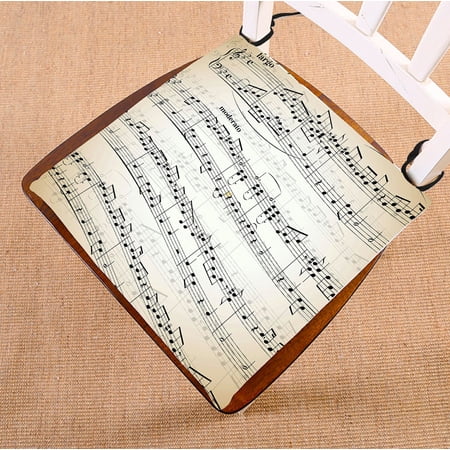 largo
moderato